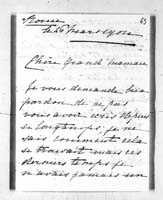 Rome
63
le 6 Mars
Chère Grand'Maman
Je vous demande bien
pardon de ne pas
vous avoir écris depuis
si longtemps, je ne
sais comment cela
se trouvait mais ces
derniers temps je
n'avais jamais un